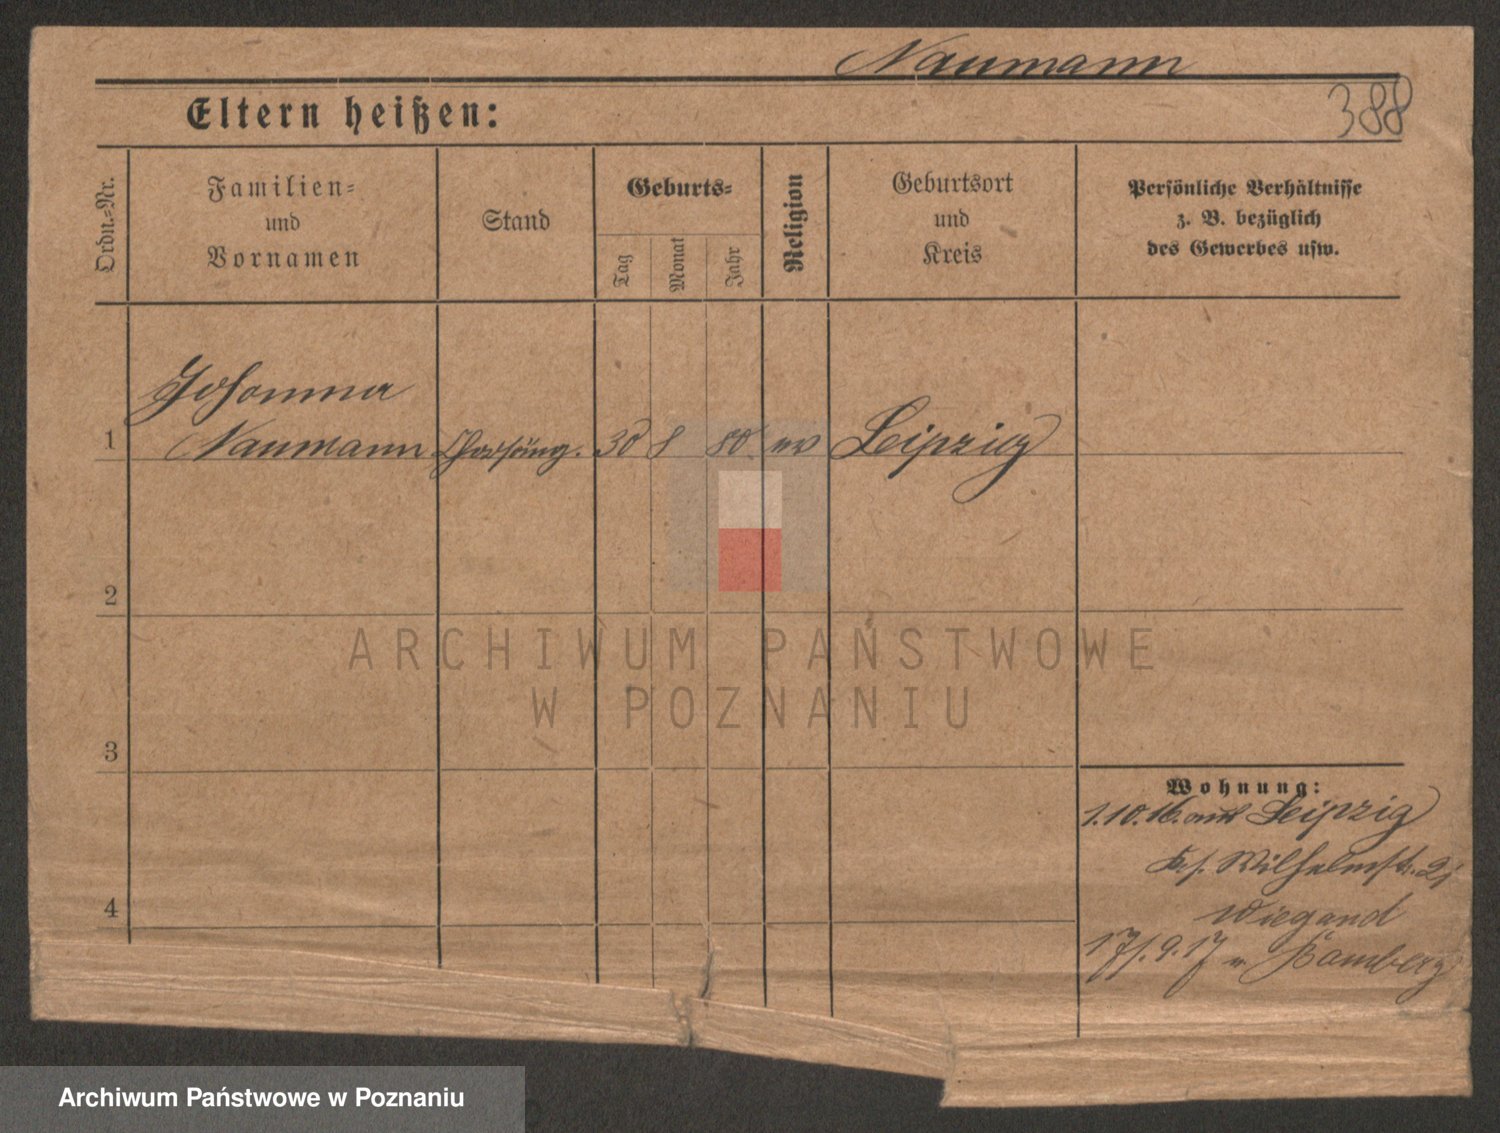 Naumann
388
Eltern heißen:
Ordn.=Nr.
Familien=
und
Vornamen
Stand
Geburts=
Tag
Monat
Jahr
Religion
Geburtsort
und
Kreis
Persönliche Verhältnisse
z. B. bezüglich
des Gewerbes usw.
Johanna
1 Naumann Chorsäng. 30 8 80 ev Leipzig
2
ARCHIWUM PAŃSTWOWE
W POZNANIU
3
Wohnung:
1.10.16. aus Leipzig
Wilhelmstr.
4
Wiegand
17/.9.17 n Bamberg
Archiwum Państwowe w Poznaniu